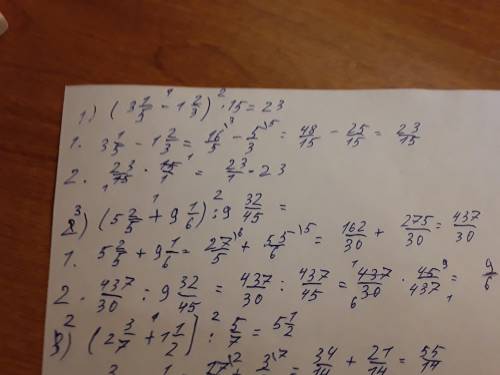 1) (3 1/5 - 1 2/3) · 15 = 23
1. 3 1/5 - 1 2/3 = 16/5 - 5/3 = 48/15 - 25/15 = 23/15
2. 23/15 · 15/1 = 23/1 = 23
2) (5 2/5 + 9 1/6) : 9 32/45 =
1. 5 2/5 + 9 1/6 = 27/5 + 55/6 = 162/30 + 275/30 = 437/30
2. 437/30 : 9 32/45 = 437/30 : 437/45 = 437/30 · 45/437 = 9/6
3) (2 3/7 + 1 1/2) : 5/7 = 5 1/2
= 17/7 + 3/2 = 34/14 + 21/14 = 55/14